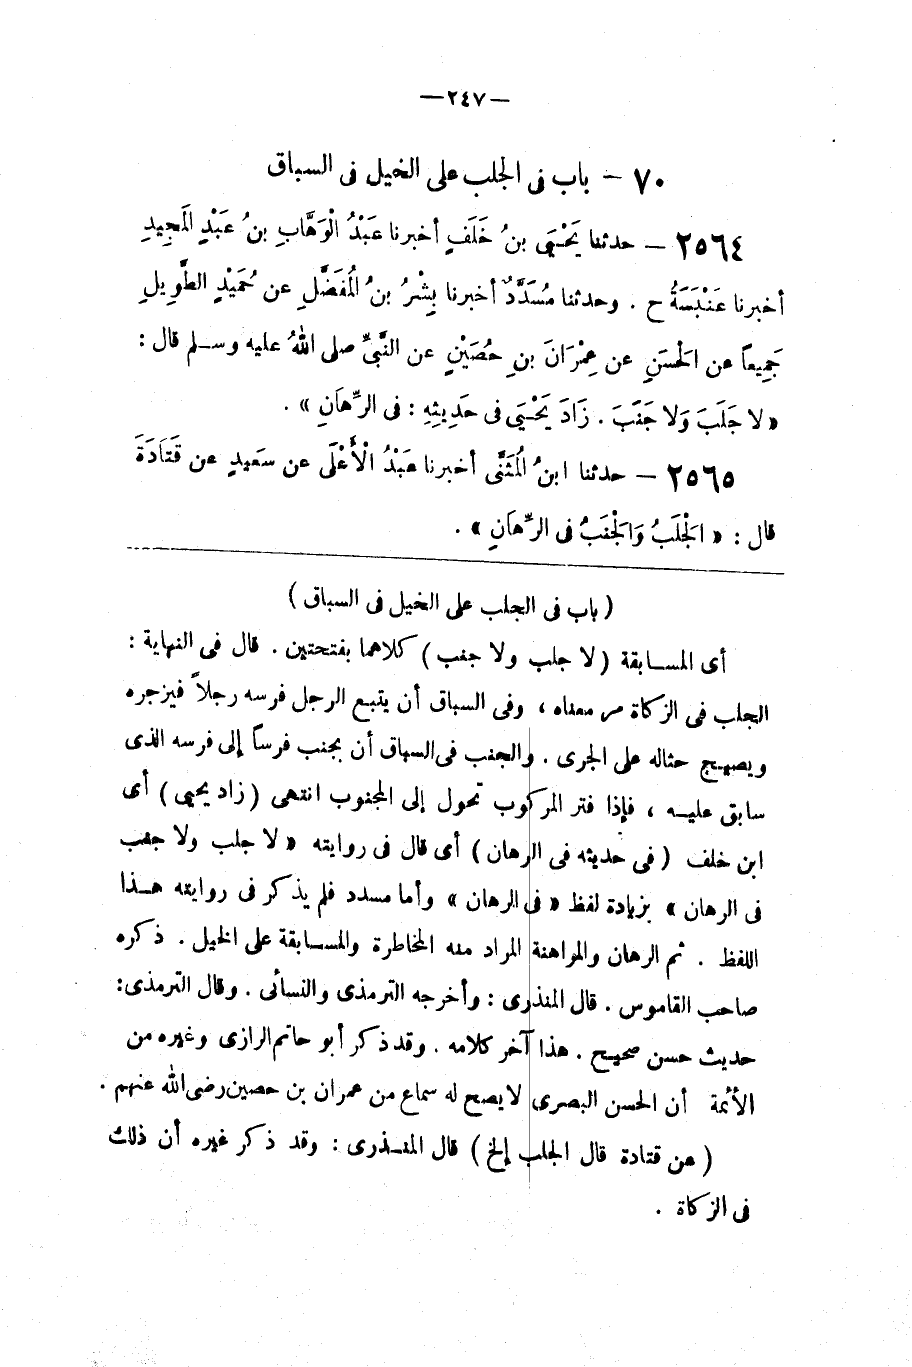 —٢٤٧—
٧٠ — باب فى الجلب على الخيل فى السباق
٢٥٦٤ — حدثنا يَحْيَى بنُ خَلَفٍ أخبرنا عَبْدُ الْوَهَّابِ بنُ عَبْدِ الْمَجِيدِ
أخبرنا عَنْبَسَةُ ح . وحدثنا مُسَدَّدٌ أخبرنا بِشْرُ بنُ الْمُفَضَّلِ عن حُمَيْدٍ الطَّوِيلِ
جَمِيعاً عن الْحَسَنِ عن عِمْرَانَ بنِ حُصَيْنٍ عن النَّبىِّ صلى اللهُ عليه وسـلم قال :
« لا جَلَبَ وَلا جَنَبَ . زَادَ يَحْيَى فى حَدِيثِهِ : فى الرِّهَانِ » .
٢٥٦٥ — حدثنا ابنُ الْمُثَنَّى أخبرنا عَبْدُ الْأَعْلَى عن سَعِيدٍ عن قَتَادَةَ
قال : « الْجَلَبُ وَالْجَنَبُ فى الرِّهَانِ » .
( باب فى الجلب على الخيل فى السباق )
أى المسـابقة ( لا جلب ولا جنب ) كلاهما بفتحتين . قال فى النهاية :
الجلب فى الزكاة مر معناه ، وفى السباق أن يتبع الرجل فرسه رجلاً فيزجره
ويصيح حثاله على الجرى . والجنب فى السباق أن يجنب فرساً إلى فرسه الذى
سابق عليـه ، فإذا فتر المركوب تحول إلى المجنوب انتهى ( زاد يحيى ) أى
ابن خلف ( فى حديثه فى الرهان ) أى قال فى روايته « لا جلب ولا جنب
فى الرهان » بزيادة لفظ « فى الرهان » وأما مسدد فلم يذكر فى روايته هـذا
اللفظ . ثم الرهان والمراهنة المراد منه المخاطرة والمسـابقة على الخيل . ذكره
صاحب القاموس . قال المنذرى : وأخرجه الترمذى والنسائى . وقال الترمذى:
حديث حسن صحيح . هذا آخر كلامه . وقد ذكر أبو حاتم الرازى وغيره من
الأئمة أن الحسن البصرى لا يصح له سماع من عمران بن حصين رضى الله عنهم .
( عن قتادة قال الجلب إلخ ) قال المنـذرى : وقد ذكر غيره أن ذلك
فى الزكاة .